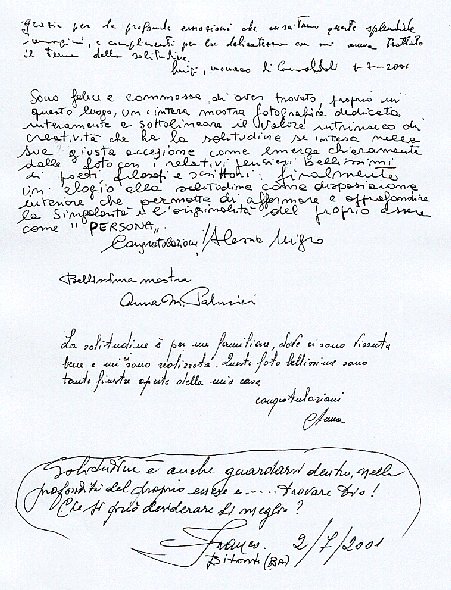 grazie per le profonde emozioni che suscitano queste splendide
immagini, e complimenti per la delicatezza con cui avete trattato
il tema della solitudine.
Luigi, monaco di Camaldoli 1-7-2001
Sono felice e commossa, di aver trovato, proprio in
questo luogo, un'intera mostra fotografica dedicata
interamente a sottolineare il valore intrinseco di
creatività che ha la solitudine se intesa nella
sua giusta accezione come emerge chiaramente
dalle foto con i relativi pensieri Bellissimi
di poeti filosofi e scrittori. Finalmente
un elogio alla solitudine come disposizione
interiore che permette di affermare e approfondire
la singolarità e l'originalità del proprio essere
come "PERSONA".
Congratulazioni!
Bellissima mostra
Anna M.
La solitudine è per me familiare, dove ci sono vissuta
bene e mi sono realizzata. Queste foto bellissime sono
tante finestre aperte della mia casa
congratulazioni
Solitudine è anche guardarsi dentro, nella
profondità del proprio essere e ..... trovare Dio!
Che si può desiderare di meglio?
2/7/2001
Bitonto (BA)